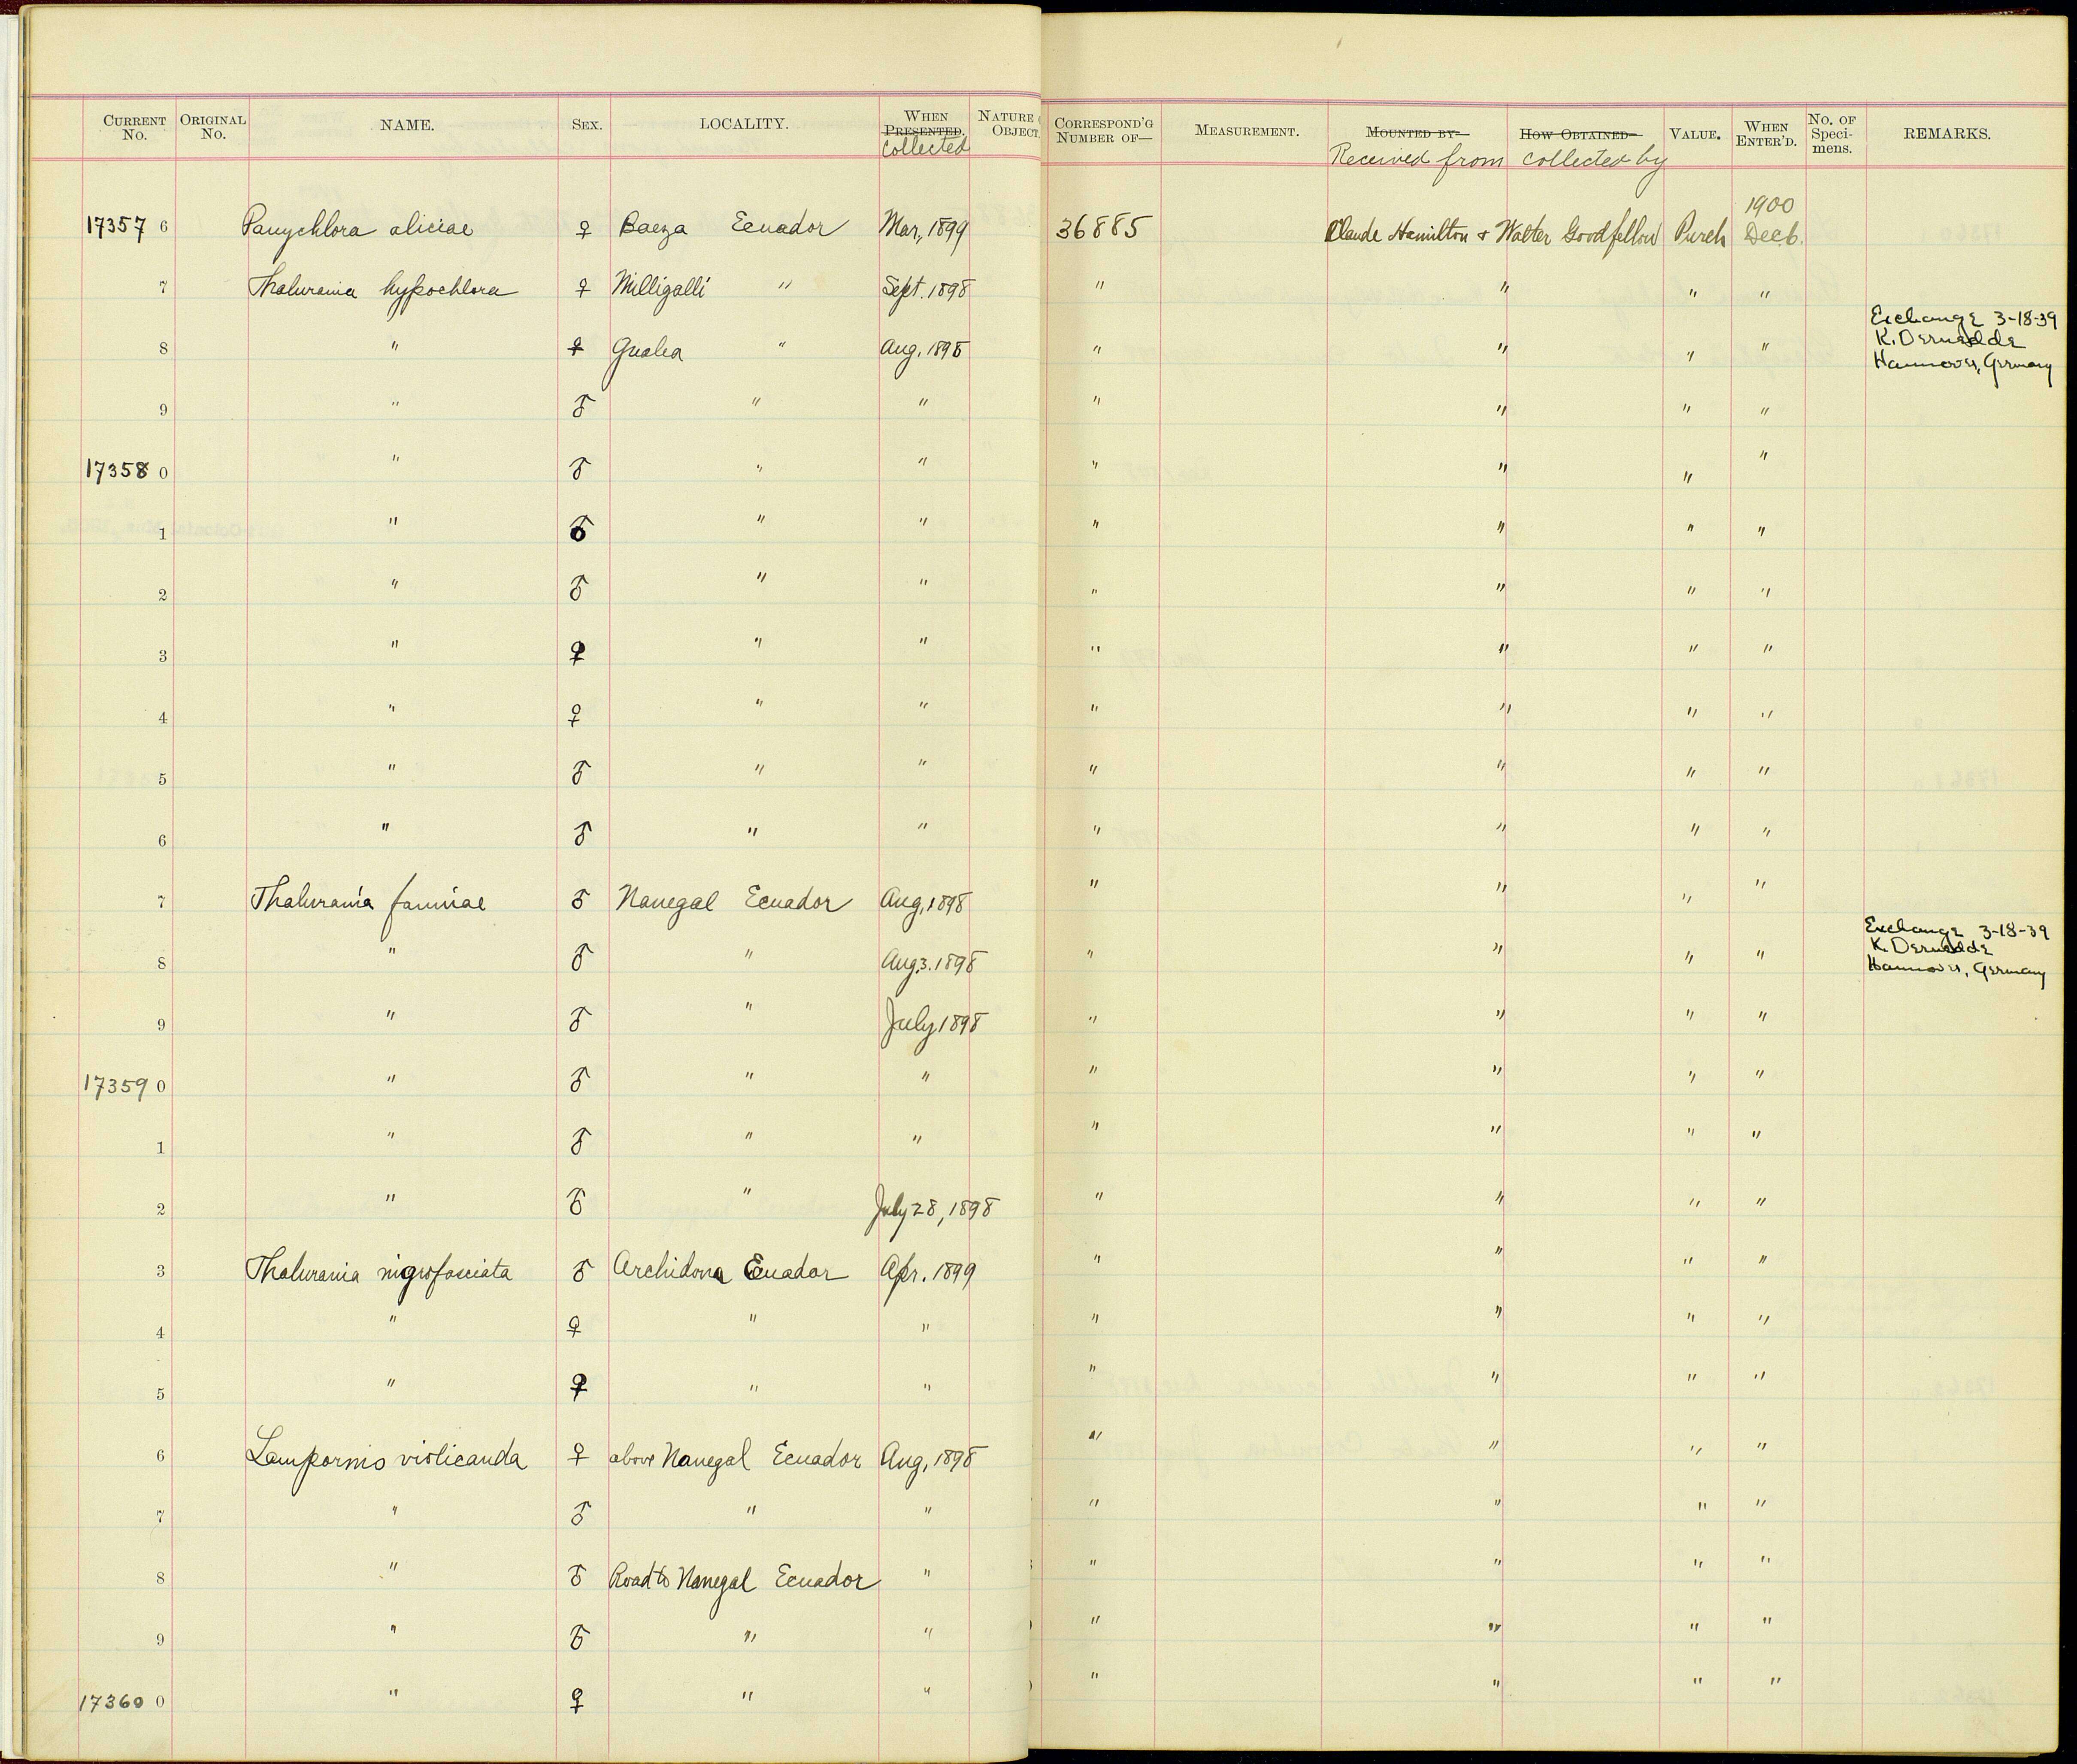 CURRENT No. ORIGINAL No. NAME. SEX. LOCALITY. WHEN PRESENTED. NATURE OBJECT. CORRESPOND'G NUMBER OF— MEASUREMENT. MOUNTED BY— HOW OBTAINED— VALUE. WHEN ENTER'D. No. OF Speci-mens. REMARKS.
collected Received from collected by
1900
17357 6 Panychlora aliciae ♀ Baeza Ecuador Mar, 1899 36885 Claude Hamilton & Walter Goodfellow Purch Dec 6.
7 Thalurania hypochlora ♀ Milligalli " Sept. 1898 " " " "
8 " ♀ Gualea " Aug, 1898 " " " " Exchange 3-18-39
K. Dernedde
Hannover, Germany
9 " ♂ " " " " " "
17358 0 " ♂ " " " " " "
1 " ♂ " " " " " "
2 " ♂ " " " " " "
3 " ♀ " " " " " "
4 " ♀ " " " " " "
5 " ♂ " " " " " "
6 " ♂ " " " " " "
7 Thalurania fanniae ♂ Nanegal Ecuador Aug, 1898 " " " "
8 " ♂ " Aug, 3. 1898 " " " " Exchange 3-18-39
K. Dernedde
Hannover, Germany
9 " ♂ " July 1898 " " " "
17359 0 " ♂ " " " " " "
1 " ♂ " " " " " "
2 " ♂ " July 28, 1898 " " " "
3 Thalurania nigrofasciata ♂ Archidona Ecuador Apr. 1899 " " " "
4 " ♀ " " " " " "
5 " ♀ " " " " " "
6 Lampornis violicauda ♀ above Nanegal Ecuador Aug, 1898 " " " "
7 " ♂ " " " " " "
8 " ♂ Road to Nanegal Ecuador " " " " "
9 " ♂ " " " " " "
17360 0 " ♀ " " " " " "